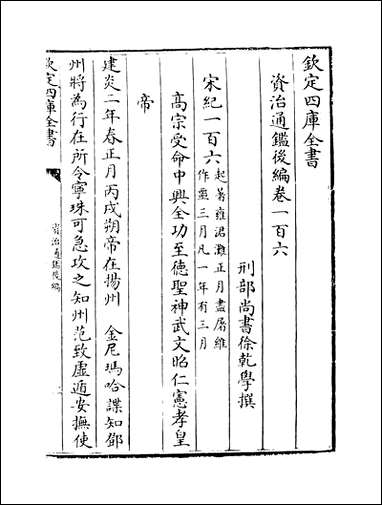 欽定四庫全書
資治通鑑後編卷一百六
刑部尚書徐乾學撰
宋紀一百六起著雍涒灘正月盡屠維
作噩三月凡一年有三月
高宗受命中興全功至德聖神武文昭仁憲孝皇
帝
建炎二年春正月丙戌朔帝在揚州 金尼瑪哈諜知鄧
州將為行在所令寧珠可急攻之知州范致虛遁安撫使
欽定四庫全書
資治通鑑後編